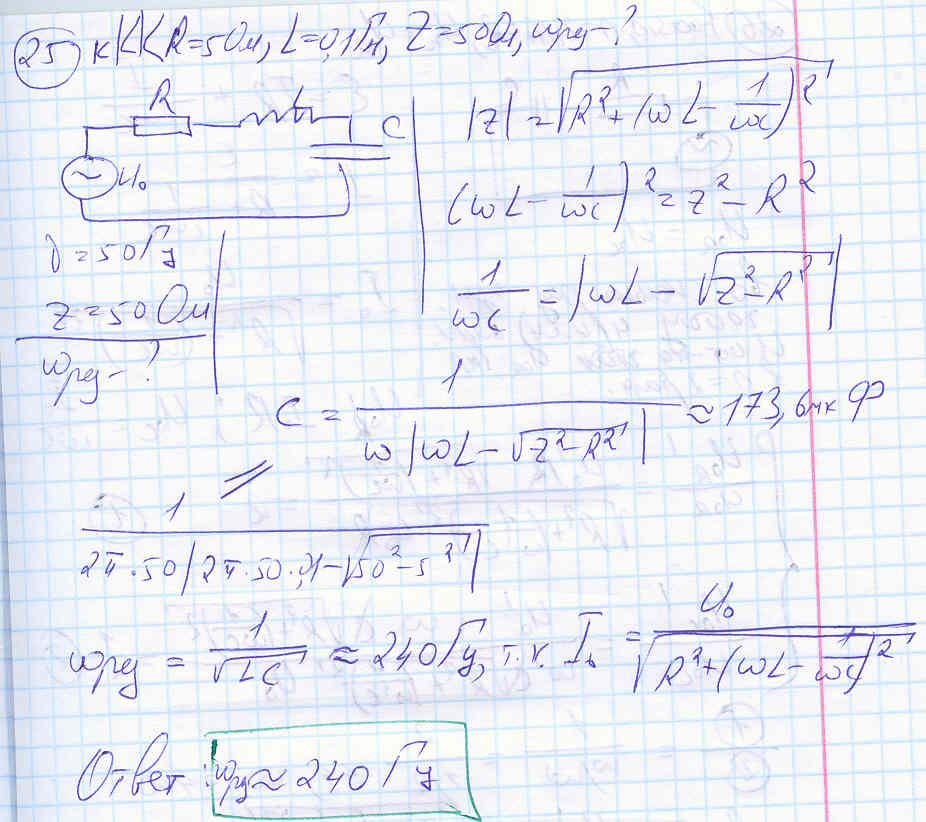 25) К<<R=5Ом, L=0,1Гн, Z=50Ом, ωрез-?
R L C
U₀
ν=50Гц
Z=50Ом
ωрез-?
|Z|=√(R²+(ωL-1/(ωC))²)
(ωL-1/(ωC))²=Z²-R²
1/(ωC)=|ωL-√(Z²-R²)|
C=1/(ω|ωL-√(Z²-R²)|)≈173,6мкФ
1/(2π·50|2π·50·0,1-√(50²-5²)|)
ωрез=1/√(LC)≈240Гц, т.к. I₀=U₀/√(R²+(ωL-1/(ωC))²)
Ответ: ωрез≈240Гц